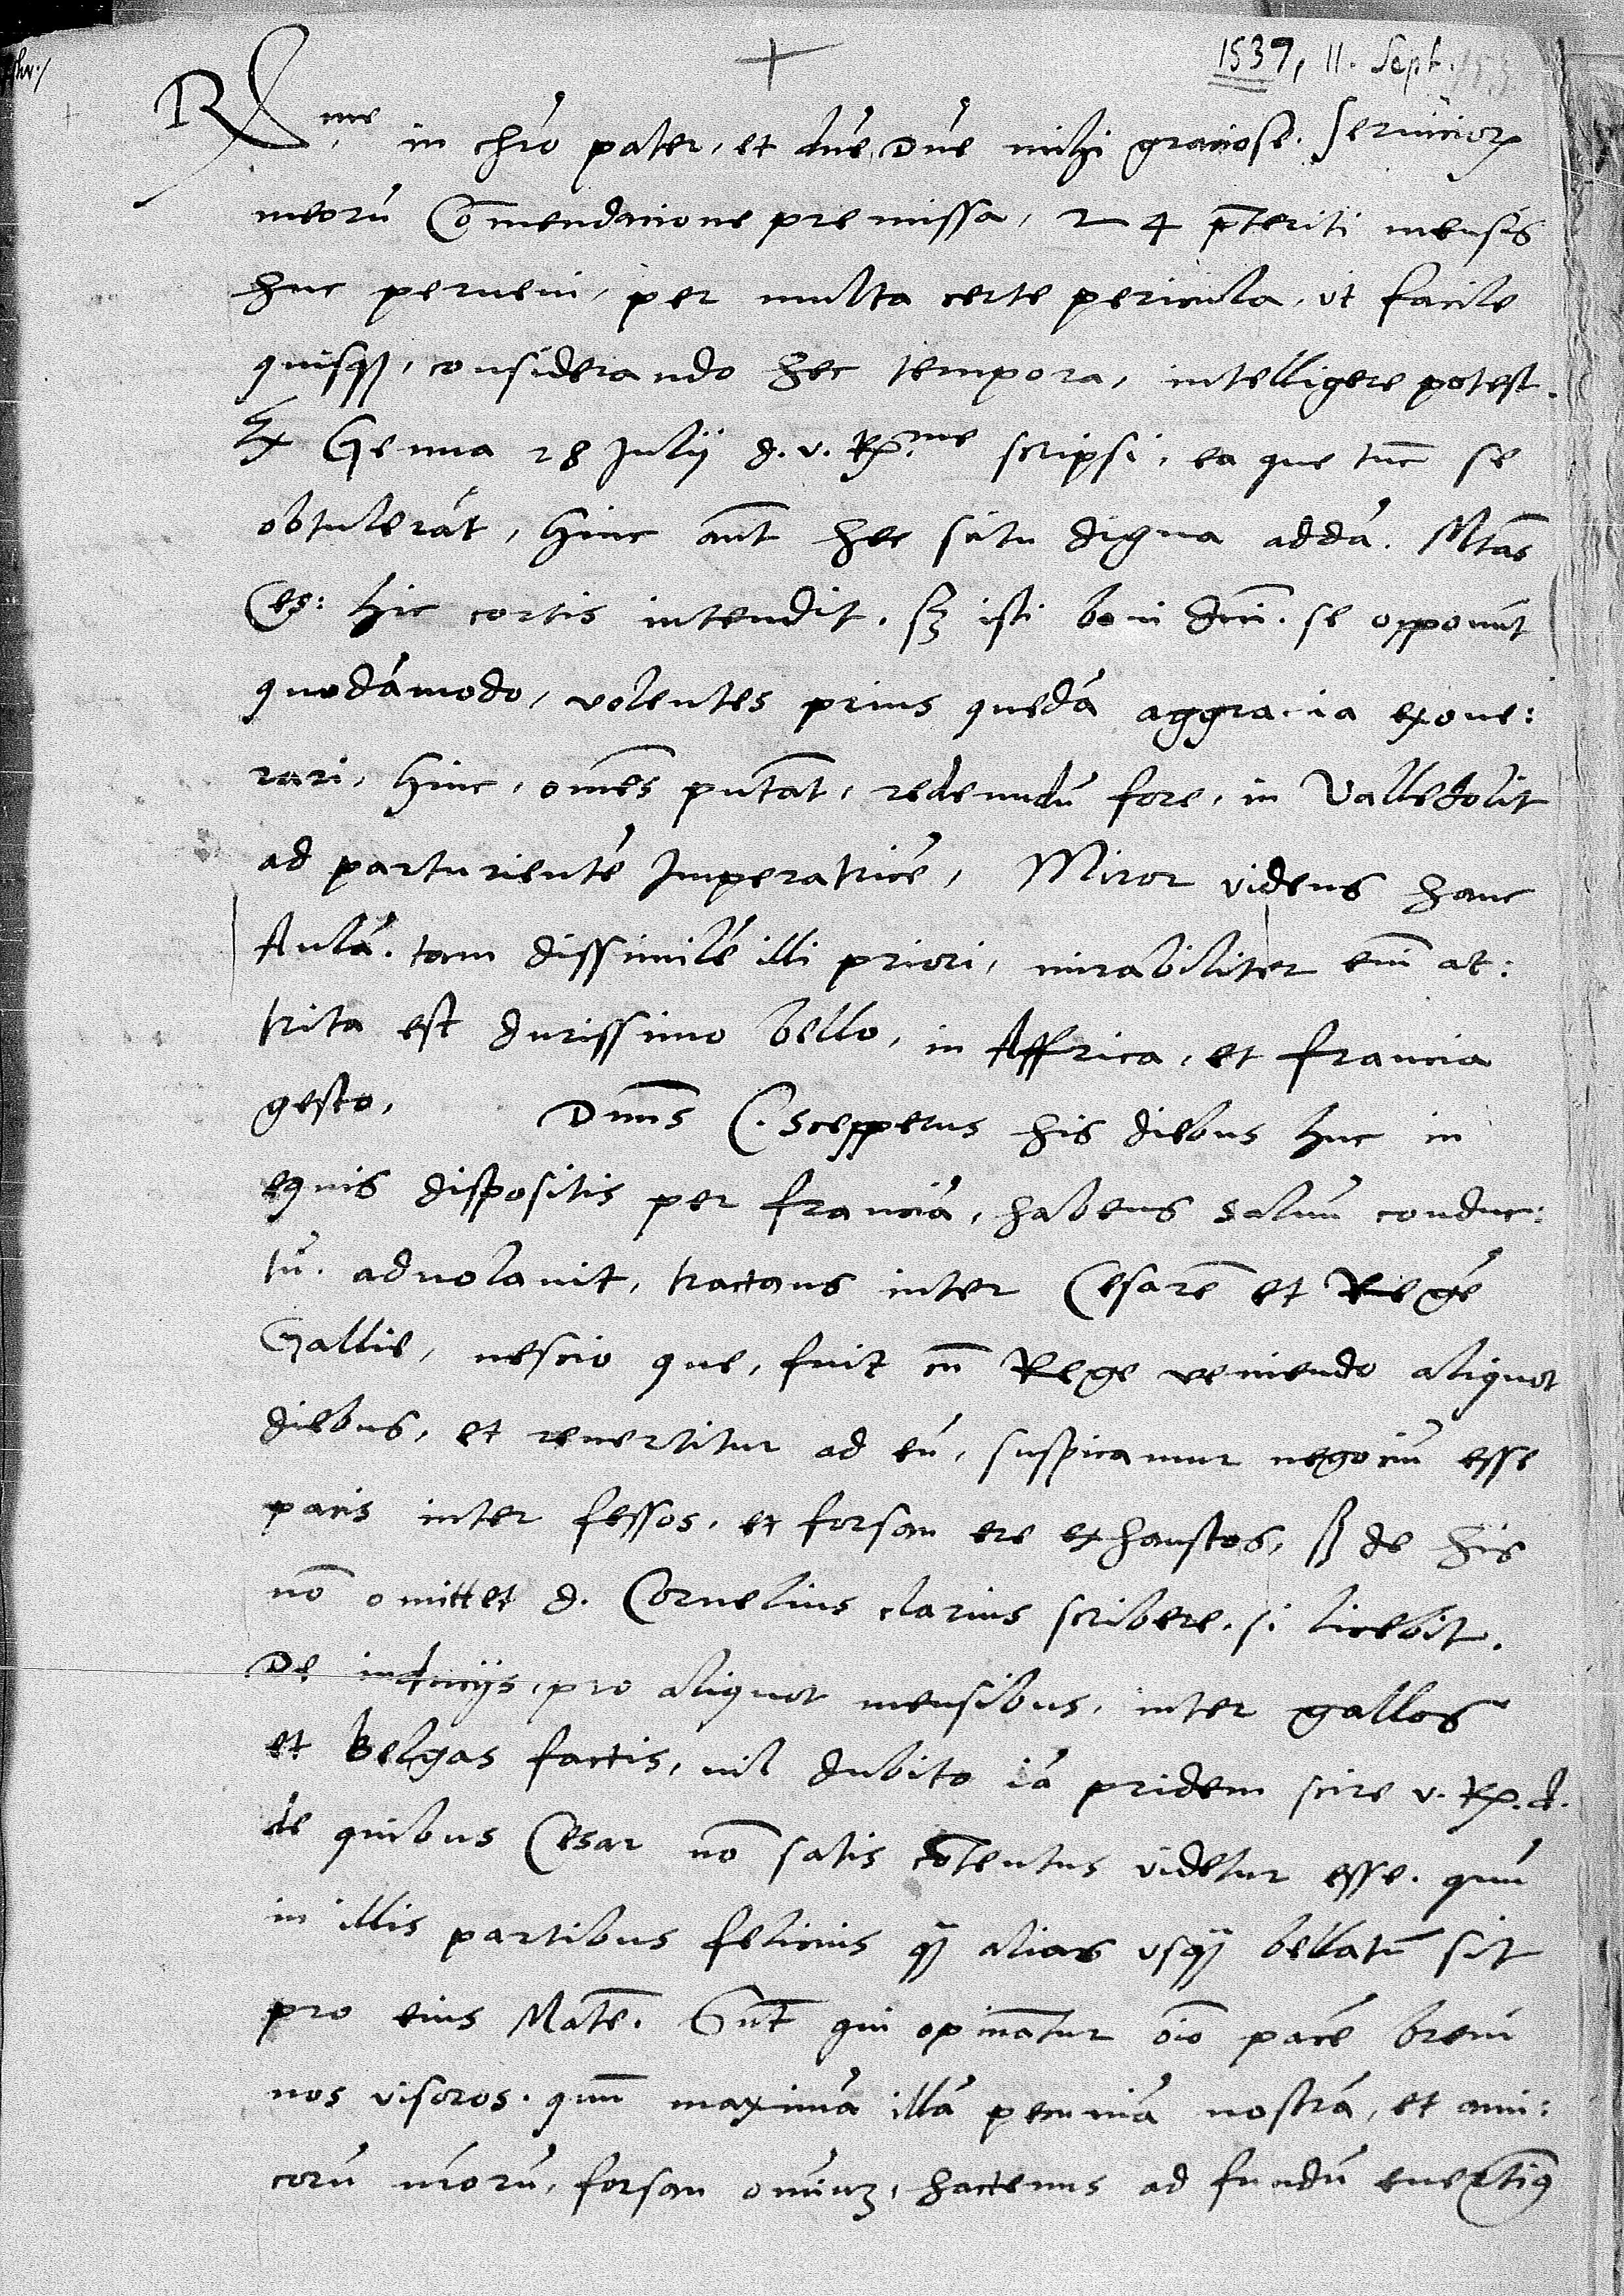 +
1537, 11. Sept.
R.me in chr̃o pater, et dn̄e, Dn̄e mihi graciose. Serviciorꝝ
meorū Cōmendacione premissa, 24 p̄teriti mensis
huc perveni, per multa certe pericula, ut facile
quisqꝫ, considerando hec tempora, intelligere potest.
Ex Genua 28 Julij d. v. Rꝑ.me scripsi, ea que tūc se
obtulerāt, Hinc aūt hec scitu digna addā. Mtās
Ces: hic cortis intendit. sꝫ isti boni dn̄i. se opponūt
quodāmodo, volentes prius quedā aggravia exone:
rari, Hinc, om̄es putāt, redeundū fore, in Valledolit
ad parturientē Imperatricē, Miror videns hanc
Aulā. tam dissimilē illi priori, mirabiliter em̄ at:
trita est durissimo bello, in Affrica, et francia
gesto, Dn̄us C. Scepperus his diebus huc in
equis dispositis per franciā, habens salvū conduc:
tū. advolavit, tractans inter Cesarē et Regē
Gallie, nescio que, fuit cū Rege veniendo aliquot
diebus, et revertitur ad eū, suspicamur negociū esse
pacis inter fessos, et forsan ere exhaustos, sꝫ de his
nō omittet d. Cornelius clarius scribere. si licebit.
De induciis, pro aliquot mensibus, inter gallos
et Belgas factis, nil dubito iā pridem scire v. Rꝑ. d.
de quibus Cesar nō satis cōtentus videtur esse. quū
in illis partibus felicius qꝫ alias usqꝫ bellatū sit
pro eius Mate. Sūt qui opināntur oīo pacē brevi
nos visuros. quū maximā illā pecuniā nostrā, et ami:
corū nr̄orū, forsan omniuꝫ, hactenus ad fundū